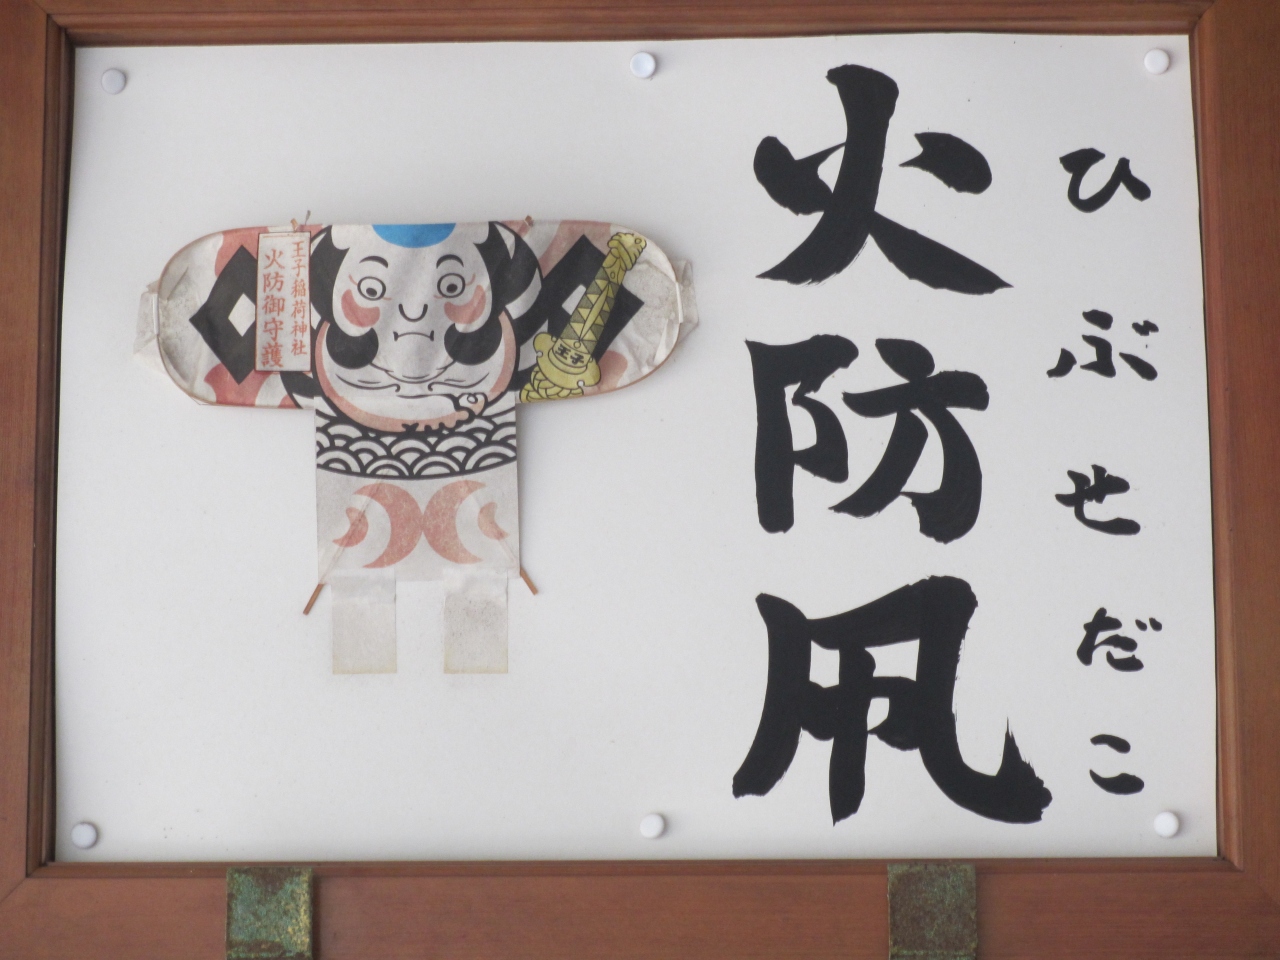 ひぶせだこ
火防凧
王子稲荷神社
火防御守護
王子